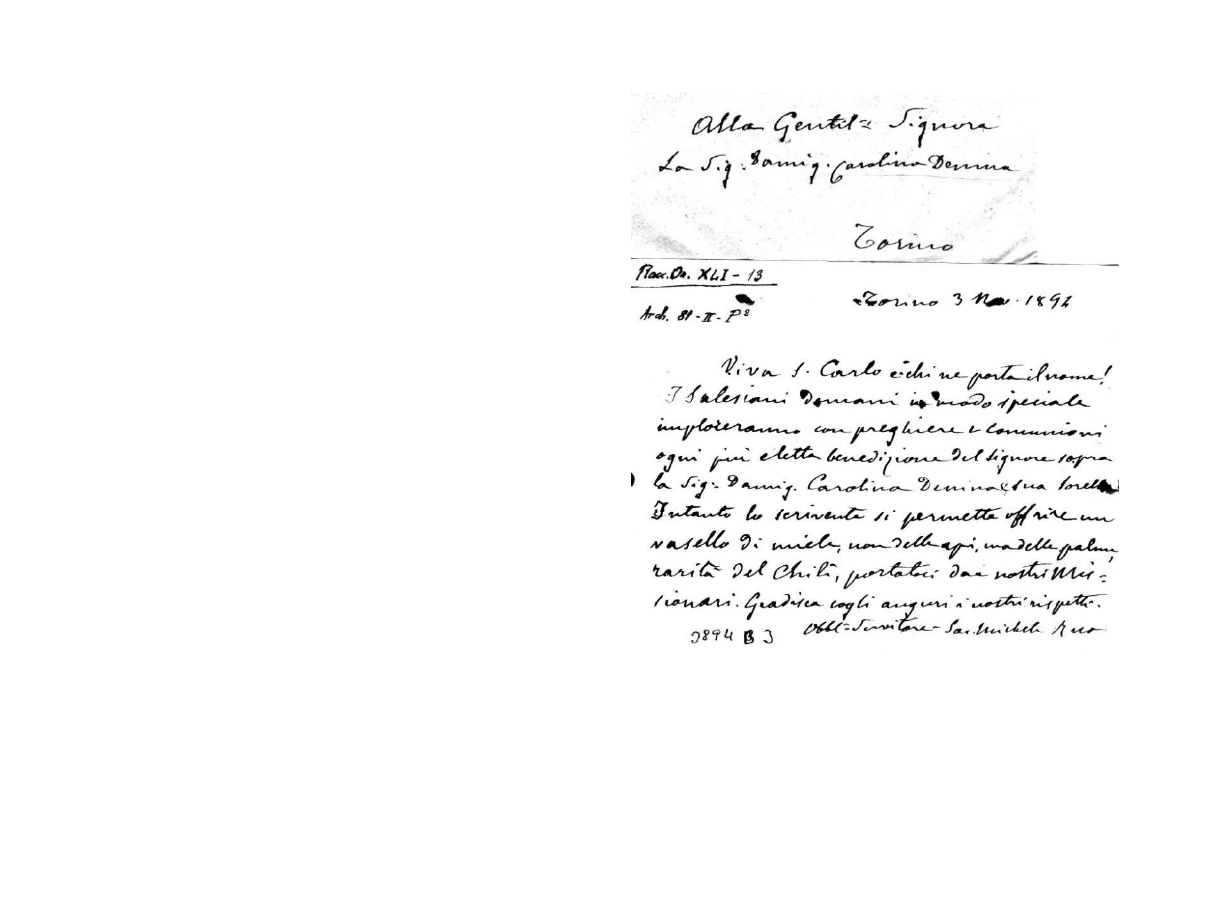 Alla Gentil.ᵃ Signora
La Sig.ᵃ Damig. Carolina Denina
Torino
Racc. Or. XLI - 13
Arch. 81 - II - Pª
Torino 3 Nov. 1892
Viva S. Carlo e chi ne porta il nome!
I Salesiani domani in modo speciale
imploreranno con preghiere e comunioni
ogni più eletta benedizione del Signore sopra
la Sig.ᵃ Damig. Carolina Denina e sua sorella
Intanto lo scrivente si permette offrire un
vasello di miele, non delle api, ma delle palme,
rarità del Chilì, portatoci dai nostri Mis=
sionari. Gradisca cogli auguri i nostri rispetti.
Obbl. Servitore Sac. Michele Rua
3894 B 3